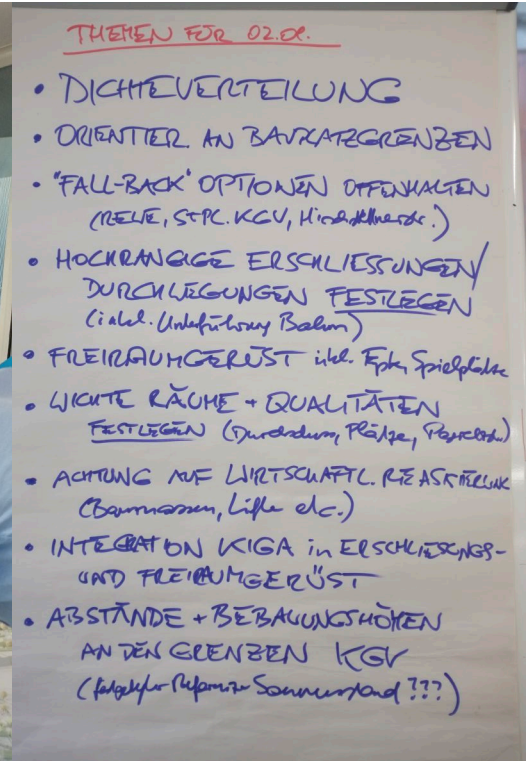 THEMEN FÜR 02.09.
• DICHTEVERTEILUNG
• ORIENTIER. AN BAUPLATZGRENZEN
• "FALL-BACK" OPTIONEN OFFENHALTEN
(REWE, STPL. KGV,
• HOCHRANGIGE ERSCHLIESSUNGEN/
DURCHLEGUNGEN FESTLEGEN
(inkl. Unterführung Bahn)
• FREIRAUMGERÜST inkl. Spielplätze
• WICHTE RÄUME + QUALITÄTEN
FESTLEGEN (Durchschuss, Plätze,
• ACHTUNG AUF WIRTSCHAFTL. REALISIERUNG
(Baumassen, Lifte etc.)
• INTEGRATION KIGA in ERSCHLIESSUNGS-
UND FREIRAUMGERÜST
• ABSTÄNDE + BEBAUUNGSHÖHEN
AN DEN GRENZEN KGV
( Sonnenstand ???)